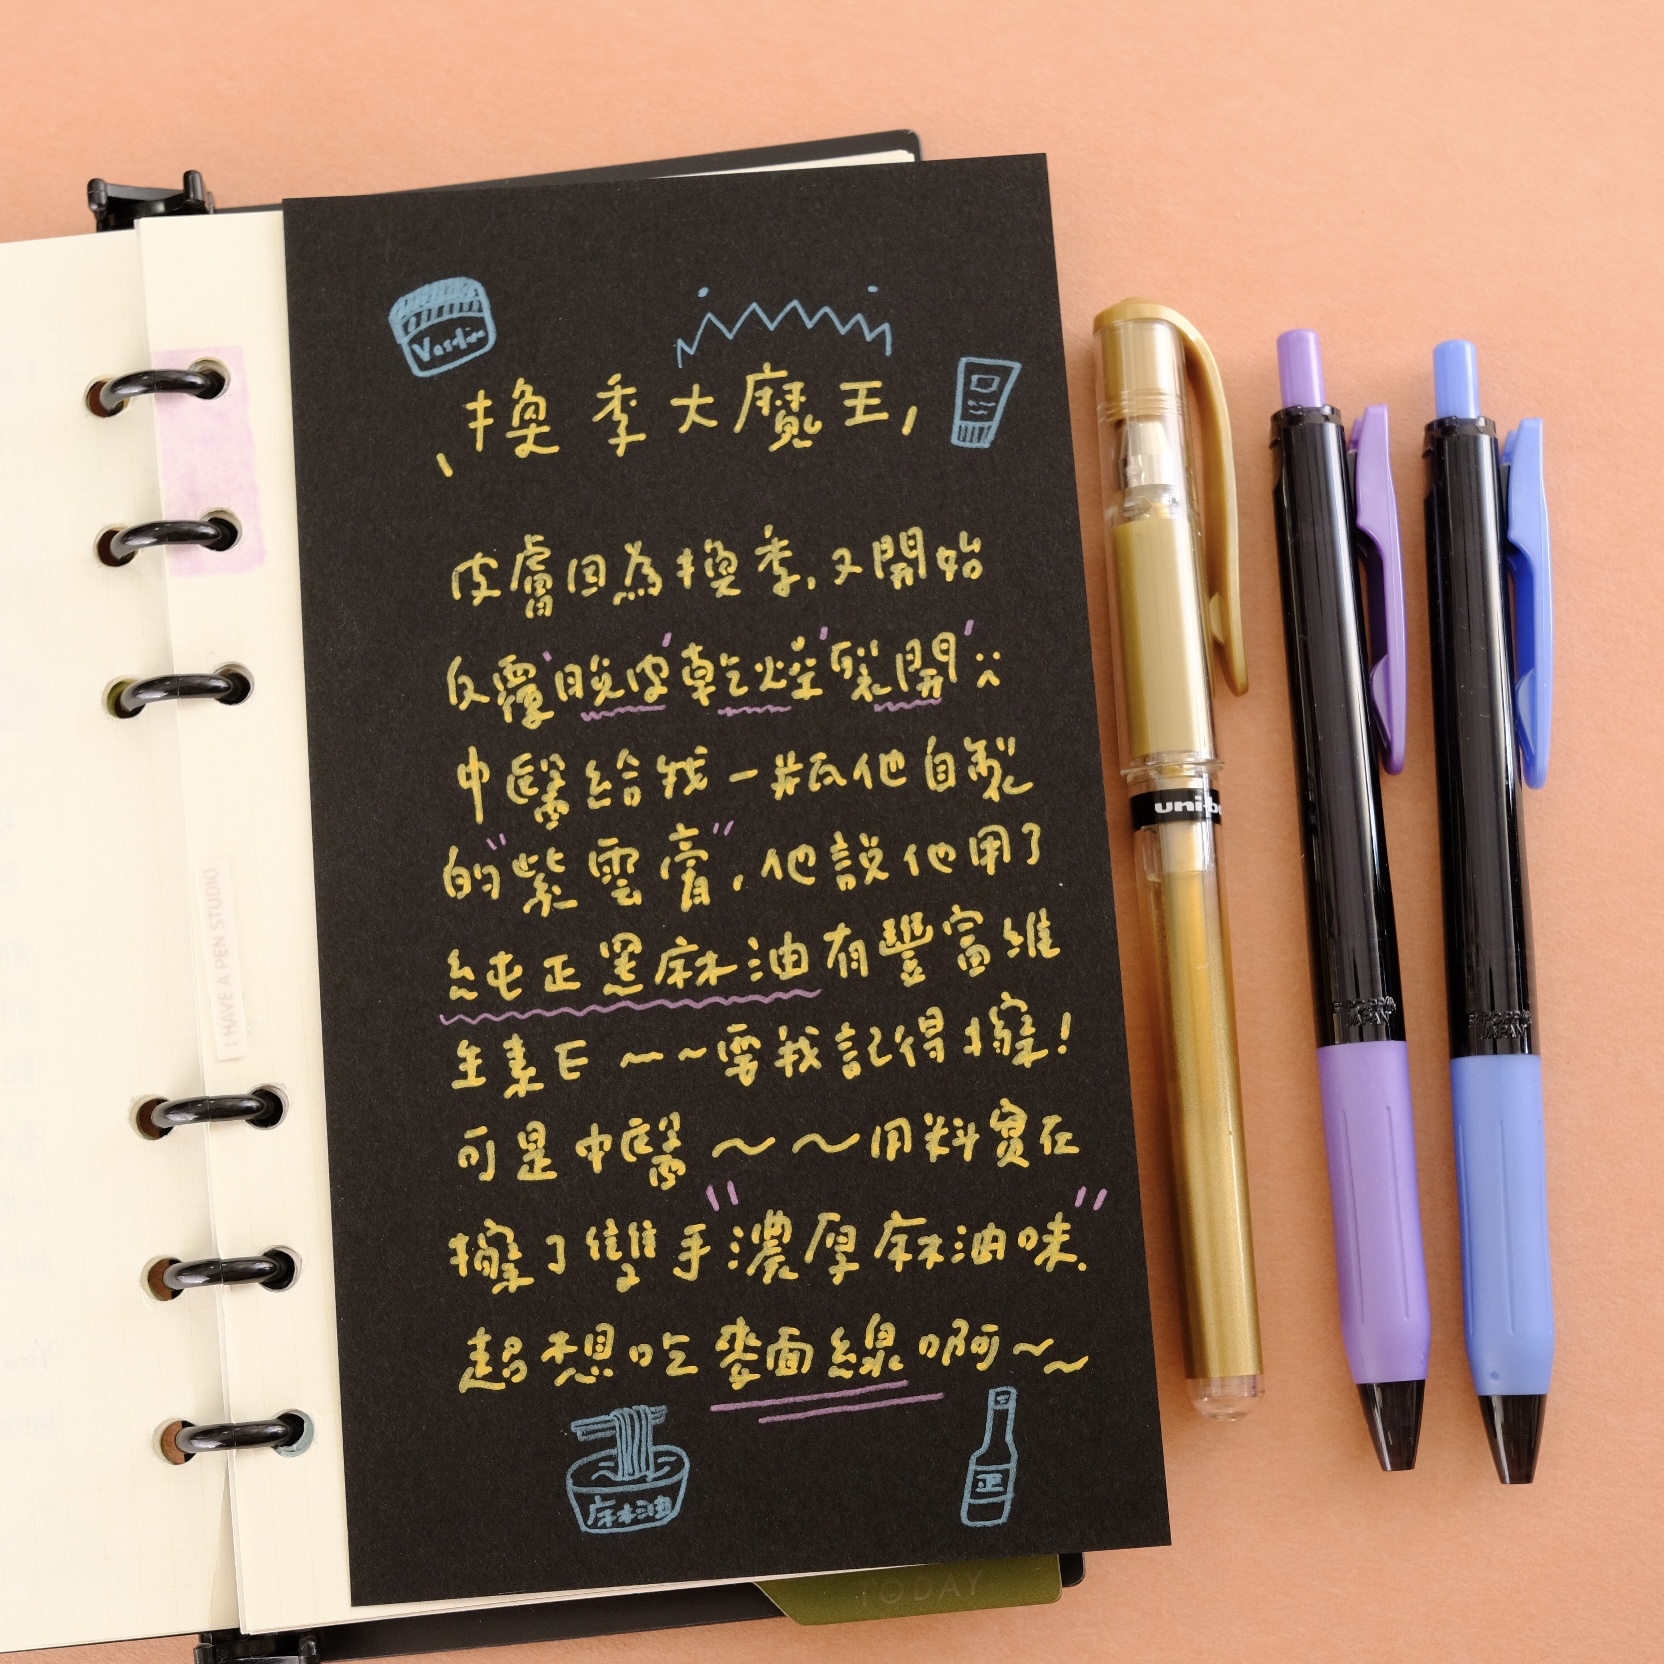 Vaseline
、換季大魔王,
皮膚因為換季,又開始
反覆'脫皮'乾燥'裂開':(
中醫給我一瓶他自製
的"紫雲膏",他說他用了
純正黑麻油有豐富維
生素E~~要我記得擦!
可是中醫~~用料實在
擦了雙手"濃厚麻油味."
超想吃麥面線啊~~
麻油
正
I HAVE A PEN STUDIO
TODAY